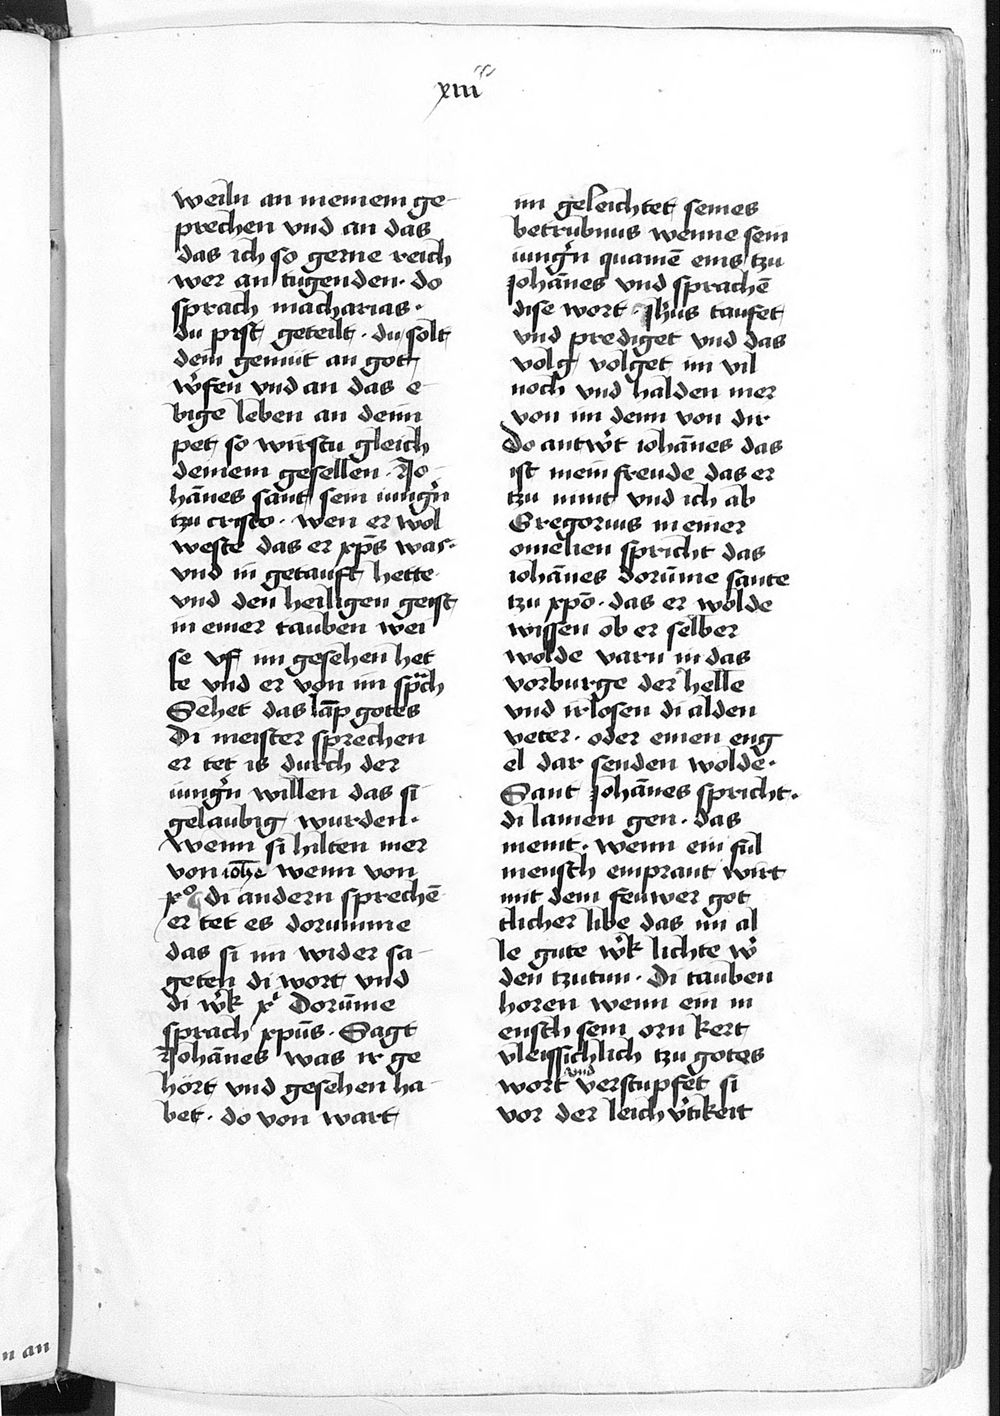 xiiii
weiln an meinem ge-
prechen vnd an das
das ich so gerne reich
wer an tugenden · do
sprach macharias ·
du prist geteilt · du solt
dein gemüt an got
w̾fen vnd an das e-
bige leben an deim
pet so wirstu gleich
deinem gesellen · Jo-
hānes sant sein iung̾n
tzu cristo · wen er wol
weste das er xp̄s was ·
vnd in getauft hette ·
vnd den heiligen geist
in einer tauben wei
se vf im gesehen het
te vnd er von im sp̾ch
Sehet das lāp gotes
Di meister sprechen
er tet is durch der
iung̾n willen das si
gelaubig wurden ·
wenn si hilten mer
von ioh̄e wenn von
xº di andern sprechē
er tet es dorumme
das si im wider sa-
geten di wort vnd
di w̾k xⁱ Dorūme
sprach xpūs · Sagt
Johānes was ir ge
hört vnd gesehen ha-
bet · do von wart
im geleichtet seines
betrubnus wenne sein
iung̾n quamē eins tzu
Johānes vnd sprachē
dise wort · Jh̾us taufet
vnd prediget vnd das
volg volget im vil
noch vnd halden mer
von im denn von dir
Do antw̾t iohānes das
ist mein freude das er
tzu nimt vnd ich ab
Gregorius in einer
omelien spricht das
iohānes dorūme sante
tzu xpō · das er wolde
wissen ob er selber
wolde varn in das
vorburge der helle
vnd irlosen di alden
veter · oder einen eng
el dar senden wolde ·
Sant Johānes spricht ·
di lamen gen · das
meint · wenn ein sūl
mensch empraut wirt
mit dem feuwer got
tlicher libe das im al
le gute w̾k lichte w̾
den tzutun · Di tauben
horen wenn ein m
ensch sein orn kert
vleissichlich tzu gotes
wort vnd verstupfet si
vor der leich v̾tikeit
n an